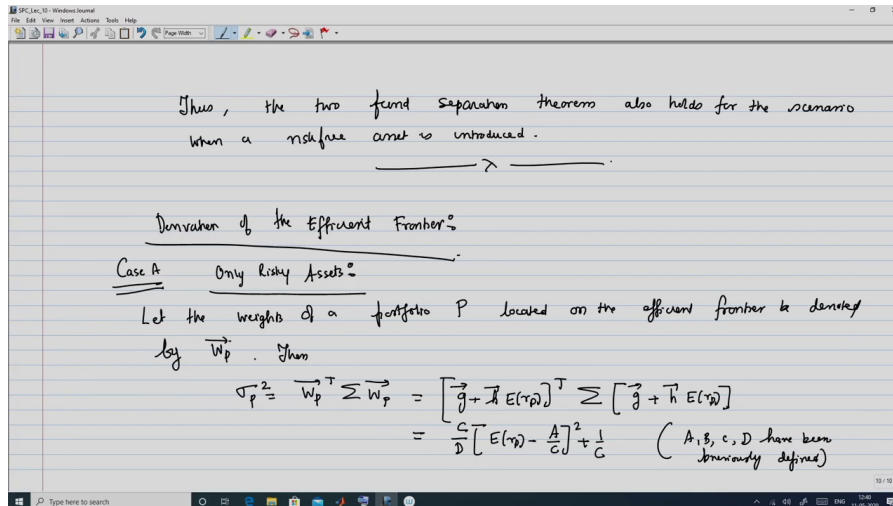 SPC_Lec_10 - Windows Journal
File Edit View Insert Actions Tools Help
Page Width
Thus, the two fund separation theorem also holds for the scenario
when a riskfree asset is introduced.
Derivation of the Efficient Frontier:
Case A Only Risky Assets:
Let the weights of a portfolio P located on the efficient frontier be denoted
by \vec{W_p}. Then
σ_p^2 = \vec{W_p}^T Σ \vec{W_p} = [\vec{g} + \vec{h} E(r_p)]^T Σ [\vec{g} + \vec{h} E(r_p)]
= C/D [E(r_p) - A/C]^2 + 1/C (A, B, C, D have been
previously defined)
10 / 10
Type here to search
ENG
12:40
11-05-2020